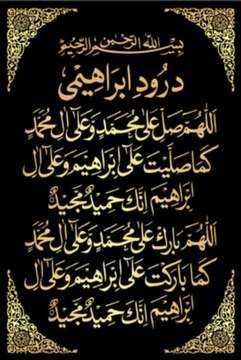 بِسْمِ اللهِ الرَّحْمٰنِ الرَّحِيْمِ
درودِ ابراهیمی
اَللّٰهُمَّ صَلِّ عَلٰى مُحَمَّدٍ وَّعَلٰى اٰلِ مُحَمَّدٍ
كَمَا صَلَّيْتَ عَلٰى اِبْرَاهِيْمَ وَعَلٰى اٰلِ
اِبْرَاهِيْمَ اِنَّكَ حَمِيْدٌ مَّجِيْدٌ
اَللّٰهُمَّ بَارِكْ عَلٰى مُحَمَّدٍ وَّعَلٰى اٰلِ مُحَمَّدٍ
كَمَا بَارَكْتَ عَلٰى اِبْرَاهِيْمَ وَعَلٰى اٰلِ
اِبْرَاهِيْمَ اِنَّكَ حَمِيْدٌ مَّجِيْدٌ